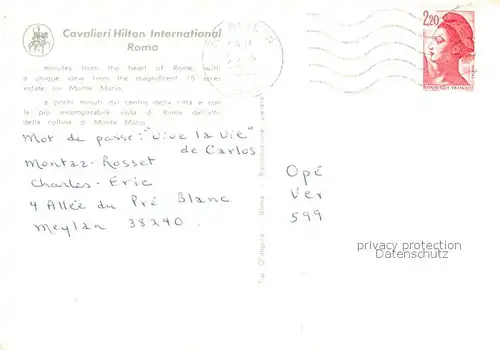 Cavalieri Hilton International
Roma
minutes from the heart of Rome, with
a unique view from the magnificent 15 acres
estate on Monte Mario.
a pochi minuti dal centro della città e con
la più incomparabile vista di Roma dall'alto
della collina di Monte Mario.
Mot de passe: "Vive la Vie"
de Carlos
Montaz-Rosset
Charles-Eric
4 Allée du Pré Blanc
Meylan 38240.
Opé
Ver
599
2,20
privacy protection
Datenschutz